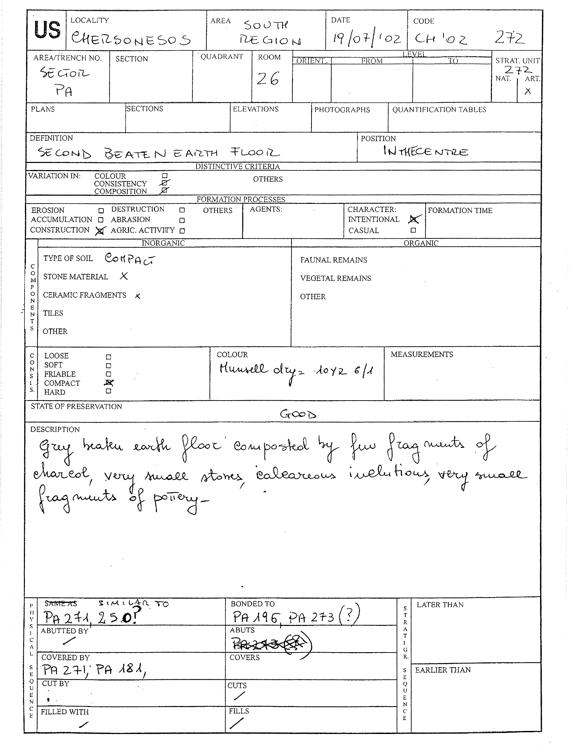 US
LOCALITY
CHERSONESOS
AREA SOUTH
REGION
DATE
19/07/'02
CODE
CH '02 272
AREA/TRENCH NO.
SECTOR
PA
SECTION
QUADRANT
ROOM
26
LEVEL
ORIENT. FROM TO
STRAT. UNIT
272
NAT. ART.
X
PLANS
SECTIONS
ELEVATIONS
PHOTOGRAPHS
QUANTIFICATION TABLES
DEFINITION
SECOND BEATEN EARTH FLOOR
POSITION
IN THE CENTRE
DISTINCTIVE CRITERIA
VARIATION IN: COLOUR
CONSISTENCY
COMPOSITION
OTHERS
FORMATION PROCESSES
EROSION DESTRUCTION OTHERS
ACCUMULATION ABRASION
CONSTRUCTION AGRIC. ACTIVITY
AGENTS:
CHARACTER:
INTENTIONAL
CASUAL
FORMATION TIME
COMPONENTS
INORGANIC
TYPE OF SOIL COMPACT
STONE MATERIAL X
CERAMIC FRAGMENTS X
TILES
OTHER
ORGANIC
FAUNAL REMAINS
VEGETAL REMAINS
OTHER
CONSIS.
LOOSE
SOFT
FRIABLE
COMPACT
HARD
COLOUR
Munsell dry= 10YR 6/1
MEASUREMENTS
STATE OF PRESERVATION
GOOD
DESCRIPTION
Grey beaten earth floor composted by few fragments of
charcol, very small stones, calcareous inclutions, very small
fragments of pottery-
PHYSICAL SEQUENCE
SAME AS SIMILAR TO
PA 271, 250?
BONDED TO
PA 196, PA 273 (?)
ABUTTED BY
/
ABUTS
COVERED BY
PA 271, PA 181,
COVERS
CUT BY
CUTS
/
FILLED WITH
/
FILLS
/
STRATIGR. SEQUENCE
LATER THAN
EARLIER THAN